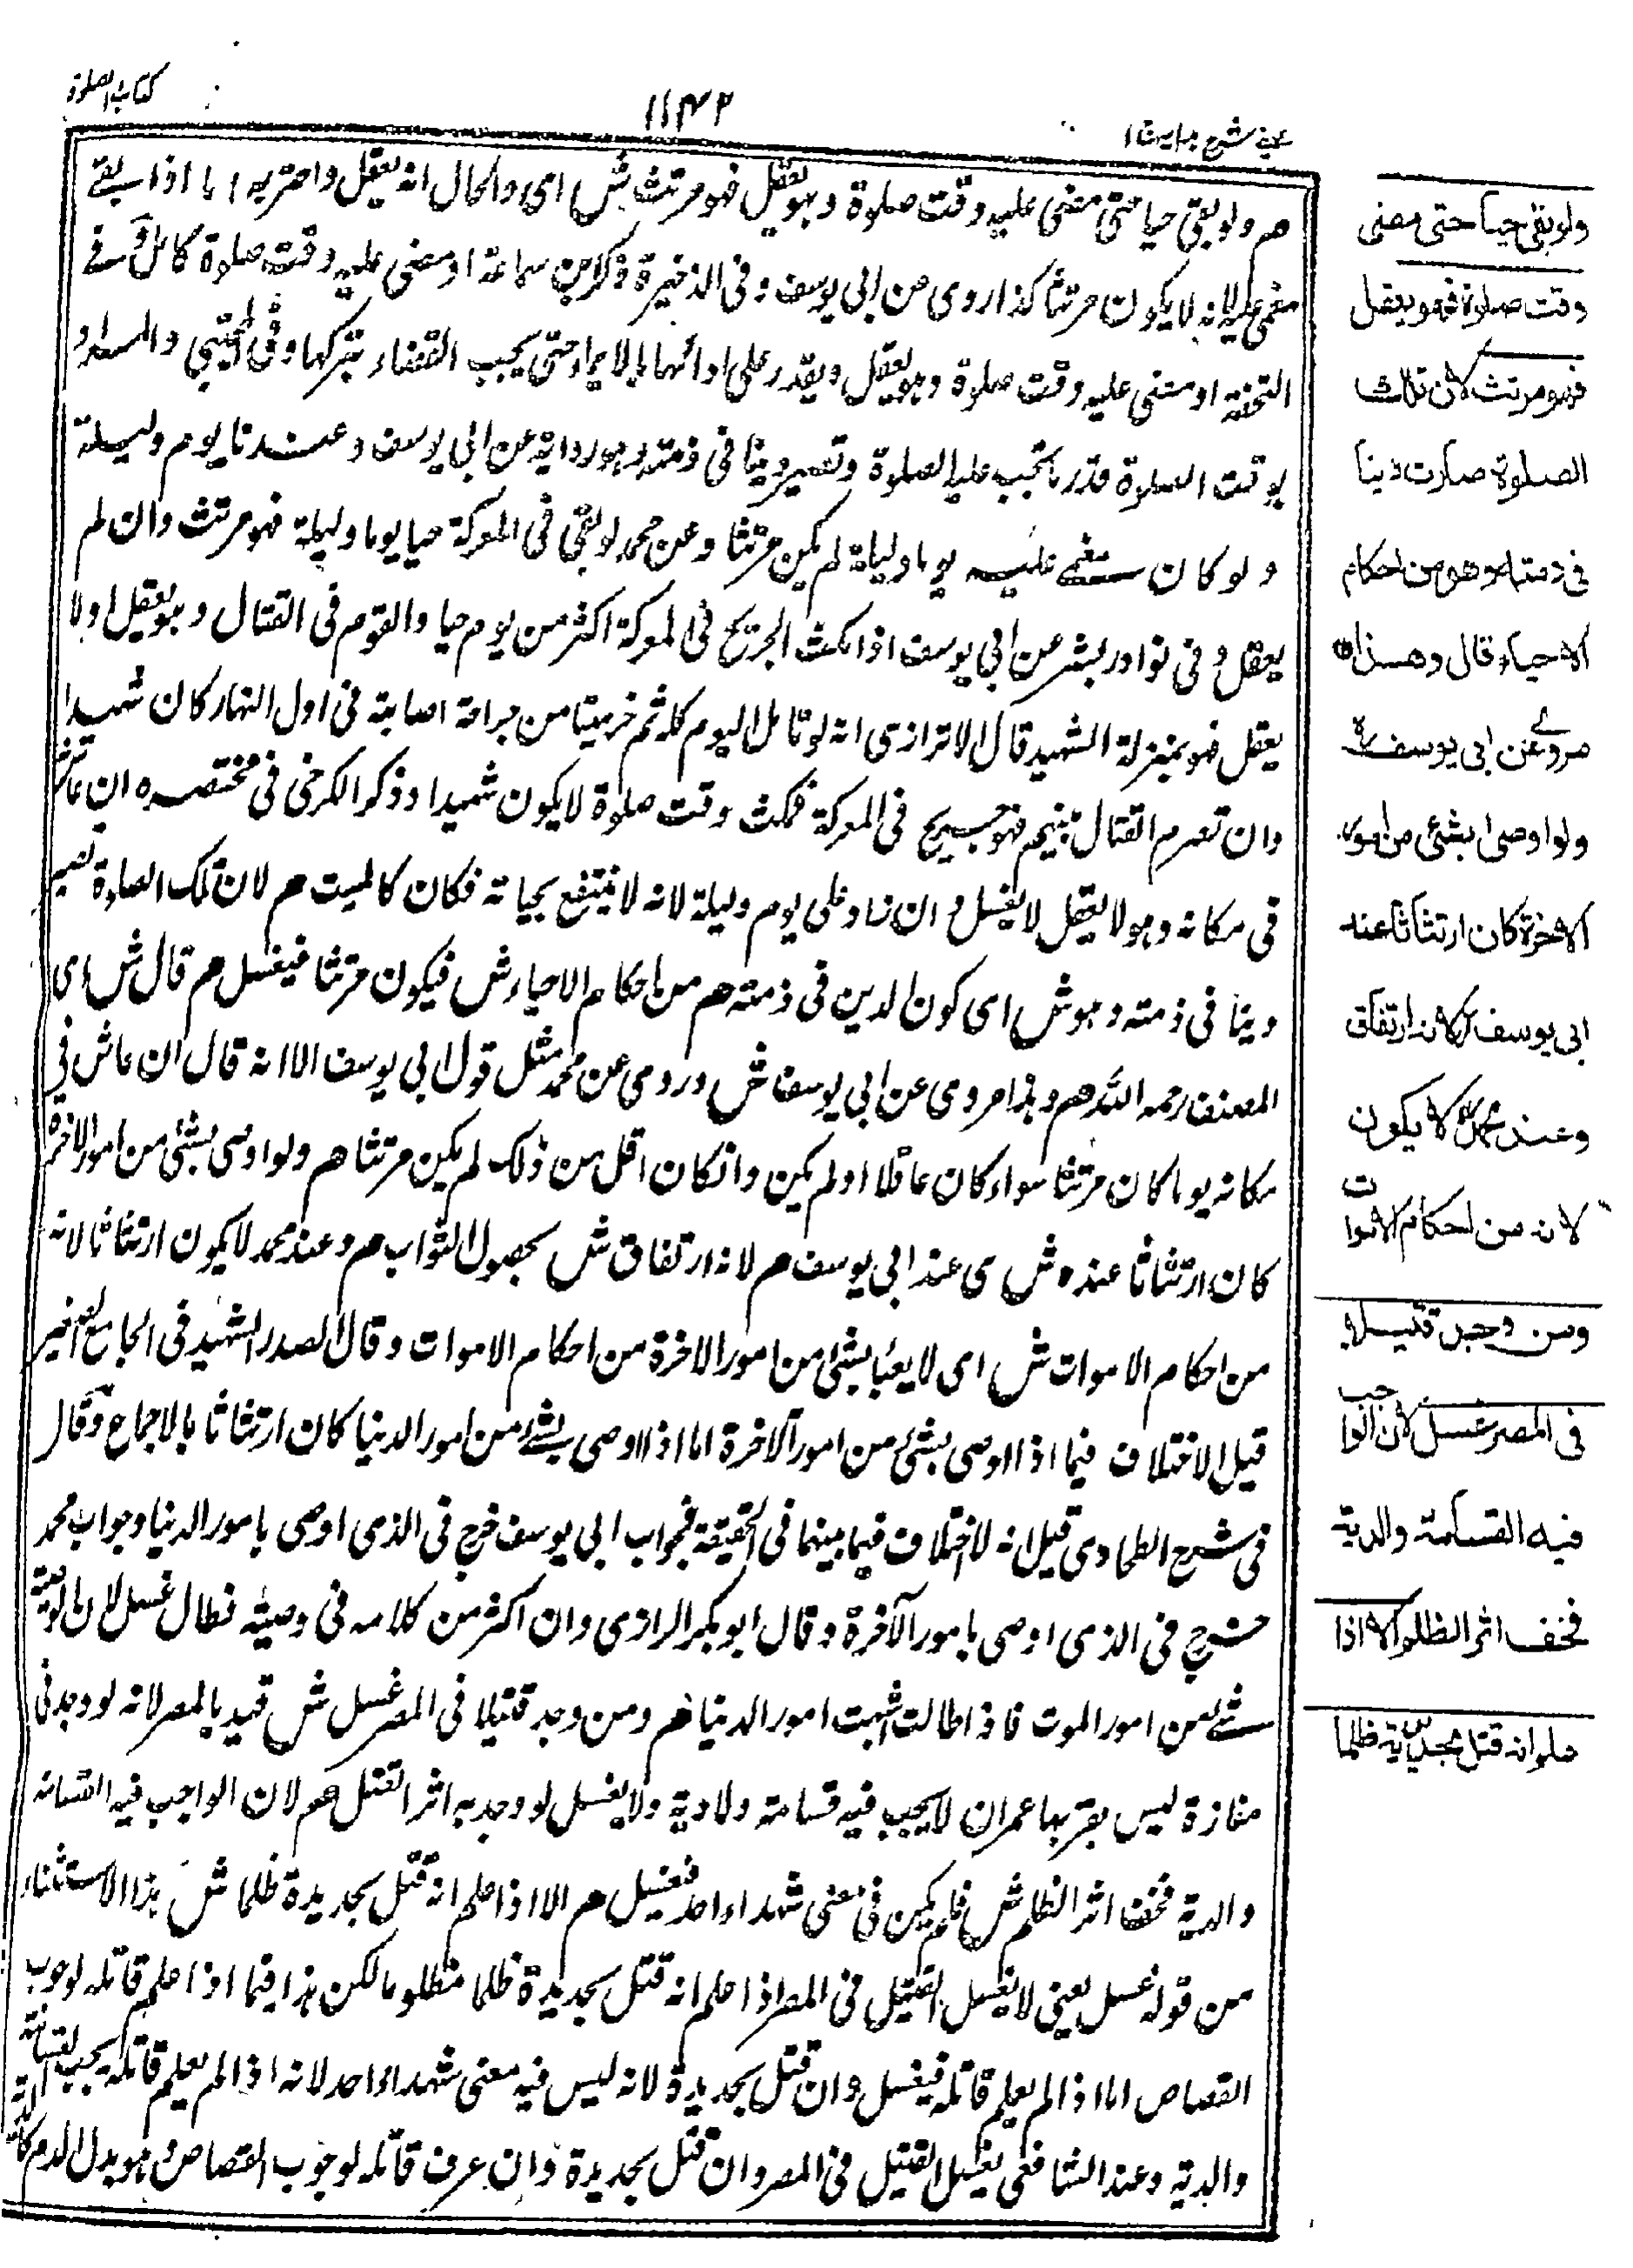 كتاب الصلوة
١١٤٢
عينى شرح هداية ج ١
هم ولو بقى حيا حتى مضى عليه وقت صلوة وهو يعقل فهو مرتث ش اى والحال انه يعقل واحترز به اما اذا بقے
مغمى عليه لانه لا يكون مرتثا كذا روى عن ابى يوسف وفى الذخيرة ذكر ابن سماعة او مضى عليه وقت صلوة كامل وفے
التحفة او مضى عليه وقت صلوة وهو يعقل ويقدر على ادائها بالايماء حتى يجب القضاء بتركها وفى المجتبى والمراد
بوقت الصلوة قدر ما تجب عليه الصلوة وتصير دينا فى ذمته وهو رواية عن ابى يوسف وعندنا يوم وليلة
ولو كان مغمے عليه يوما وليلة لم يكن مرتثا وعن محمد لو بقى فى المعركة حيا يوما وليلة فهو مرتث وان لم
يعقل وفى نوادر بشر عن ابى يوسف اذا مكث الجريح فى المعركة اكثر من يوم حيا والقوم فى القتال وهو يعقل اولا
يعقل فهو بمنزلة الشهيد قال الاترازى انه لو قاتل اليوم كله ثم خر ميتا من جراحة اصابته فى اول النهار كان شهيدا
وان تصرم القتال بينهم فهو جريح فى المعركة فمكث وقت صلوة لا يكون شهيدا وذكر الكرخى فى مختصره ان عاش
فى مكانه وهو لا يعقل لا يغسل وان زاد على يوم وليلة لانه لا ينتفع بحياته فكان كالميت هم لان تلك الصلوة تصير
دينا فى ذمته وهو ش اى كون الدين فى ذمته هم من احكام الاحياء ش فيكون مرتثا فيغسل هم قال ش اى
المصنف رحمه الله هم وهذا مروى عن ابى يوسف ش وروى عن محمد مثل قول ابى يوسف الا انه قال ان عاش فى
مكانه يوما كان مرتثا سواء كان عاقلا او لم يكن وان كان اقل من ذلك لم يكن مرتثا هم ولو اوصى بشئ من امور الاخرة
كان ارتثاثا عنده ش اى عند ابى يوسف هم لانه ارتفاق ش بحصول الثواب هم وعند محمد لا يكون ارتثاثا لانه
من احكام الاموات ش اى لا يعبأ بشئ من امور الاخرة من احكام الاموات وقال الصدر الشهيد فى الجامع الصغير
قيل الاختلاف فيما اذا اوصى بشئ من امور الآخرة اما اذا اوصى بشئ من امور الدنيا كان ارتثاثا بالاجماع وقال
فى شرح الطحاوى قيل انه لا اختلاف فيما بينهما فى الحقيقة فجواب ابى يوسف خرج فى الذى اوصى بامور الدنيا وجواب محمد
خرج فى الذى اوصى بامور الآخرة وقال ابو بكر الرازى وان اكثر من كلامه فى وصيته فطال غسل لان الوصية
شئ من امور الموت فاذا طالت اشبهت امور الدنيا هم ومن وجد قتيلا فى المصر غسل ش قيد بالمصر لانه لو وجد فى
مفازة ليس بقربها عمران لا يجب فيه قسامة ولا دية ولا يغسل لو وجد به اثر القتل هم لان الواجب فيه القسامة
والدية فخفف اثر الظلم ش فلم يكن فى معنى شهداء احد فيغسل هم الا اذا علم انه قتل بحديدة ظلما ش هذا الاستثناء
من قوله غسل يعنى لا يغسل القتيل فى المصر اذا علم انه قتل بحديدة ظلما مظلوما لكن هذا فيما اذا علم قاتله لوجوب
القصاص اما اذا لم يعلم قاتله فيغسل وان قتل بحديدة لانه ليس فيه معنى شهداء احد لانه اذا لم يعلم قاتله يجب القسامة
والدية وعند الشافعى يغسل القتيل فى المصر وان قتل بحديدة وان عرف قاتله لوجوب القصاص وهو بدل الدم كالدية
ولو بقى حيا حتى مضى
وقت صلوة وهو يعقل
فهو مرتث لان تلك
الصلوة صارت دينا
فى ذمته وهو من احكام
الاحياء قال وهذا
مروے عن ابى يوسف
ولو اوصى بشئ من امور
الاخرة كان ارتثاثا عند
ابى يوسف لانه ارتفاق
وعند محمد لا يكون
لانه من احكام الاموات
ومن وجد قتيلا
فى المصر غسل لان الواجب
فيه القسامة والدية
فخفف اثر الظلم الا اذا
علم انه قتل بحديدة ظلما